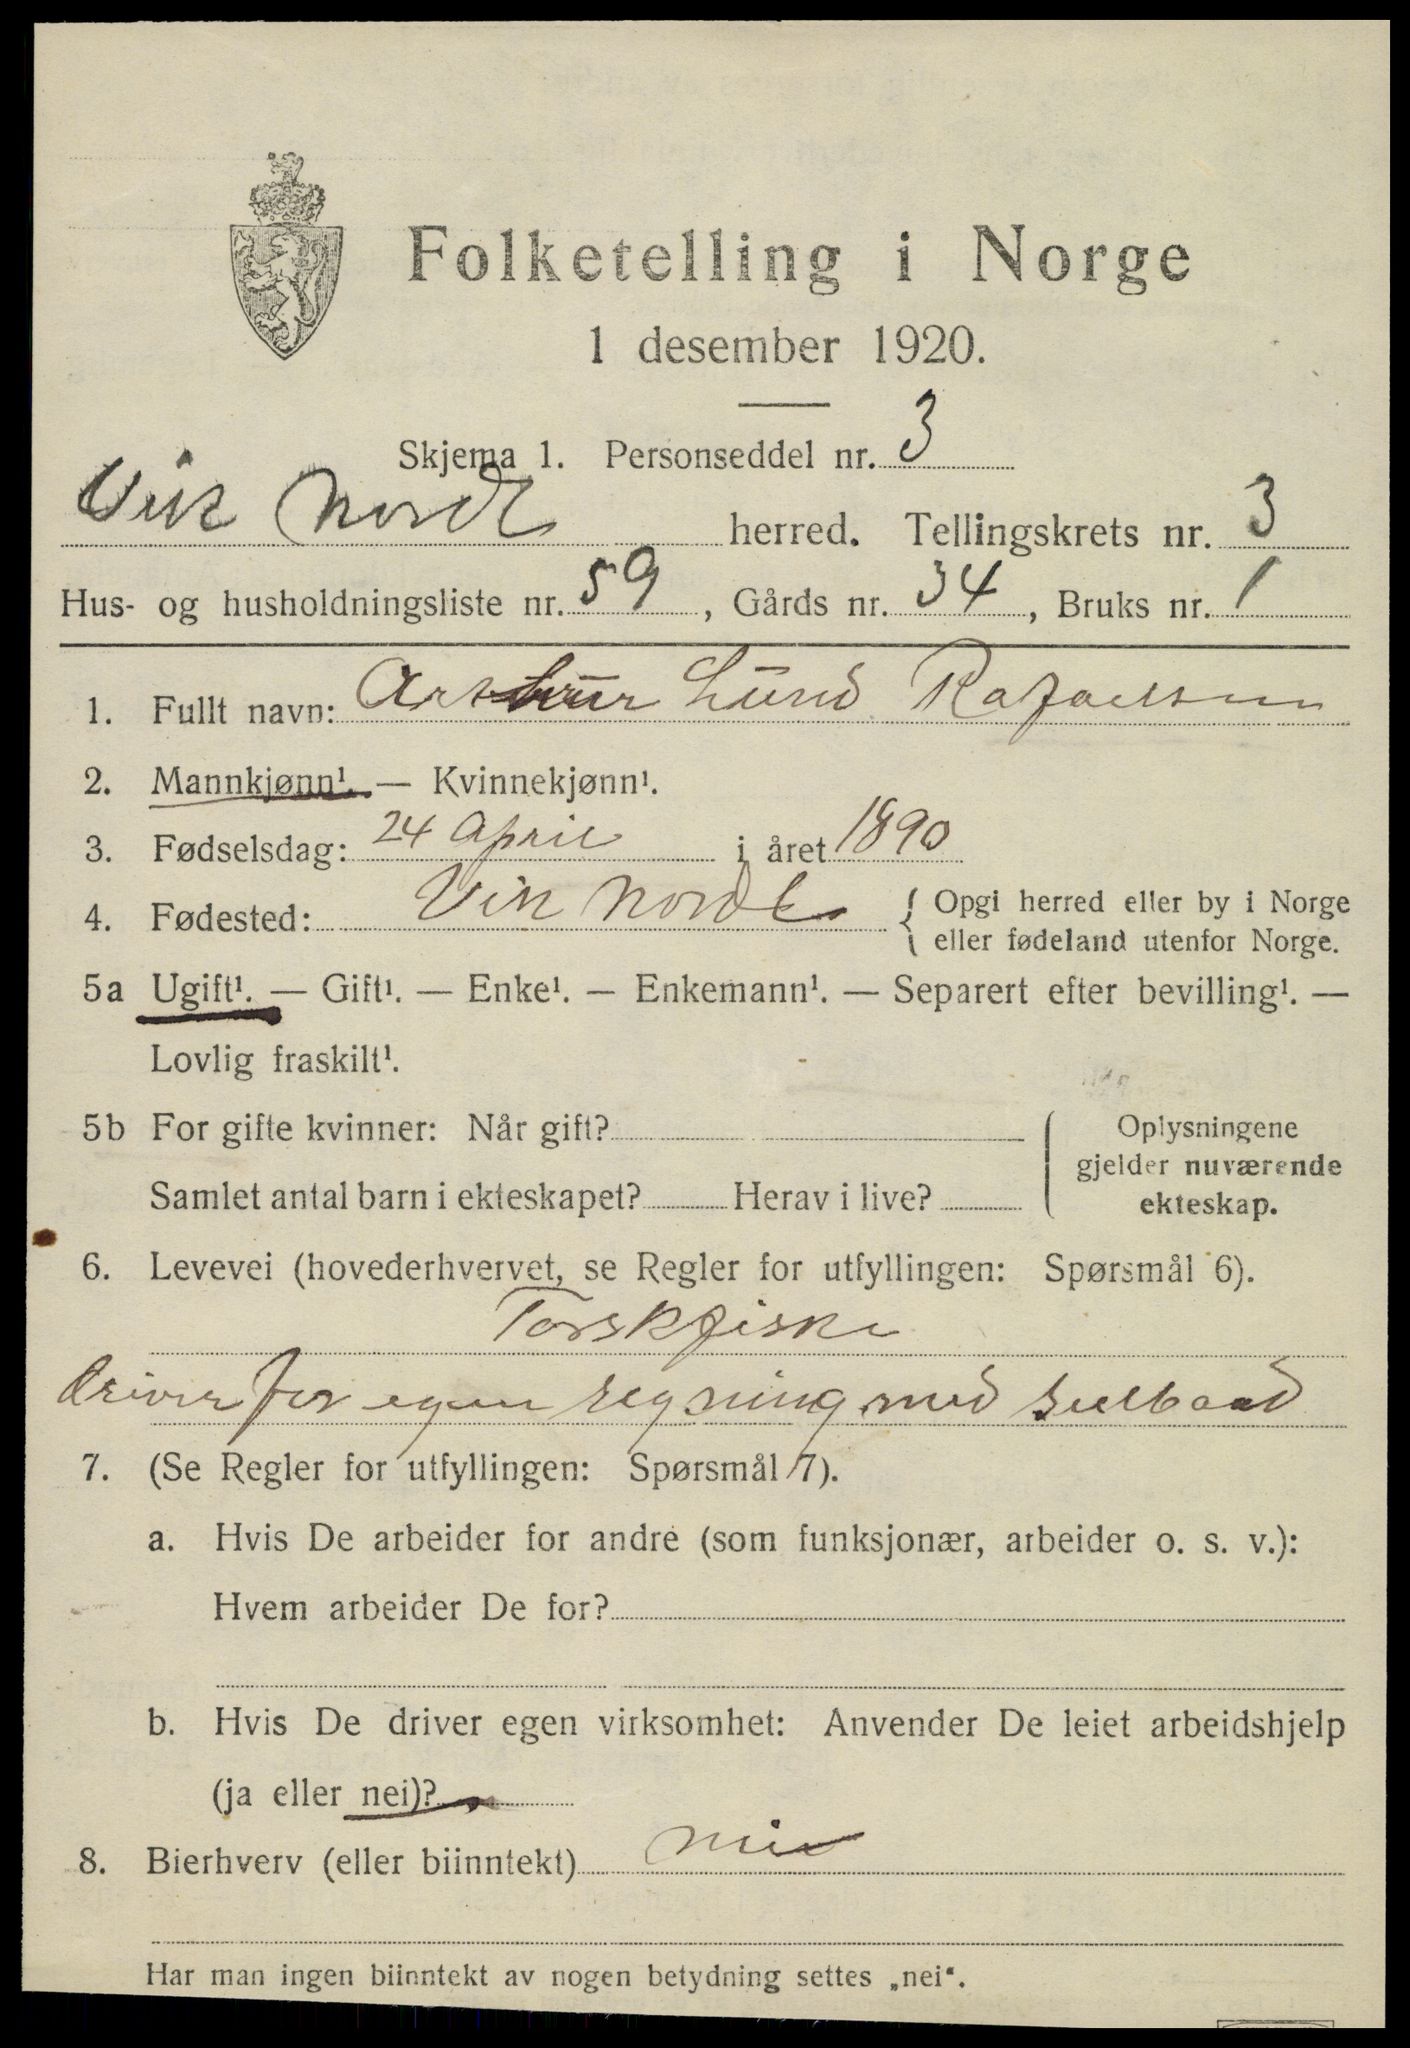 Folketelling i Norge
1 desember 1920.
Skjema 1. Personseddel nr. 3
Vik Nordl herred. Tellingskrets nr. 3
Hus- og husholdningsliste nr. 59, Gårds nr. 34, Bruks nr. 1
1. Fullt navn: Arthur Lund Rafaelsen
2. Mannkjønn¹. — Kvinnekjønn¹.
3. Fødselsdag: 24 April i året 1890
4. Fødested: Vik Nordl { Opgi herred eller by i Norge
eller fødeland utenfor Norge.
5a Ugift¹. — Gift¹. — Enke¹. — Enkemann¹. — Separert efter bevilling¹. —
Lovlig fraskilt¹.
5b For gifte kvinner: Når gift? { Oplysningene
gjelder nuværende
Samlet antal barn i ekteskapet? Herav i live? ekteskap.
6. Levevei (hovederhvervet, se Regler for utfyllingen: Spørsmål 6).
Torskfiske
driver for egen regning med seilbaad
7. (Se Regler for utfyllingen: Spørsmål 7).
a. Hvis De arbeider for andre (som funksjonær, arbeider o. s. v.):
Hvem arbeider De for?
b. Hvis De driver egen virksomhet: Anvender De leiet arbeidshjelp
(ja eller nei)?
8. Bierhverv (eller biinntekt) nei
Har man ingen biinntekt av nogen betydning settes „nei“.